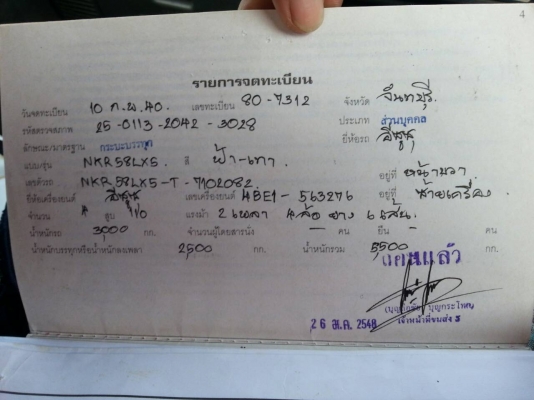 4
รายการจดทะเบียน
วันจดทะเบียน 10 ก.พ.40. เลขทะเบียน 80-7312 จังหวัด จันทบุรี.
รหัสตรวจสภาพ 25-0113-2042-3028 ประเภท ส่วนบุคคล
ลักษณะ/มาตรฐาน กระบะบรรทุก ยี่ห้อรถ อีซูซุ
แบบ/รุ่น NKR58LX5 สี ฟ้า-เทา.
เลขตัวรถ NKR58LX5-T-7102082 อยู่ที่ หน้าขวา
ยี่ห้อเครื่องยนต์ อีซูซุ เลขเครื่องยนต์ 4BE1-563276 อยู่ที่ ซ้ายเครื่อง
จำนวน 4 สูบ 110 แรงม้า 2 เพลา 4 ล้อ ยาง 6 เส้น.
น้ำหนักรถ 3,000 กก. จำนวนผู้โดยสารนั่ง - คน ยืน - คน
น้ำหนักบรรทุกหรือน้ำหนักลงเพลา 2,500 กก. น้ำหนักรวม 5,500 กก.
แล้ว
เจ้าหน้าที่ขนส่ง 5
26 มี.ค. 2548